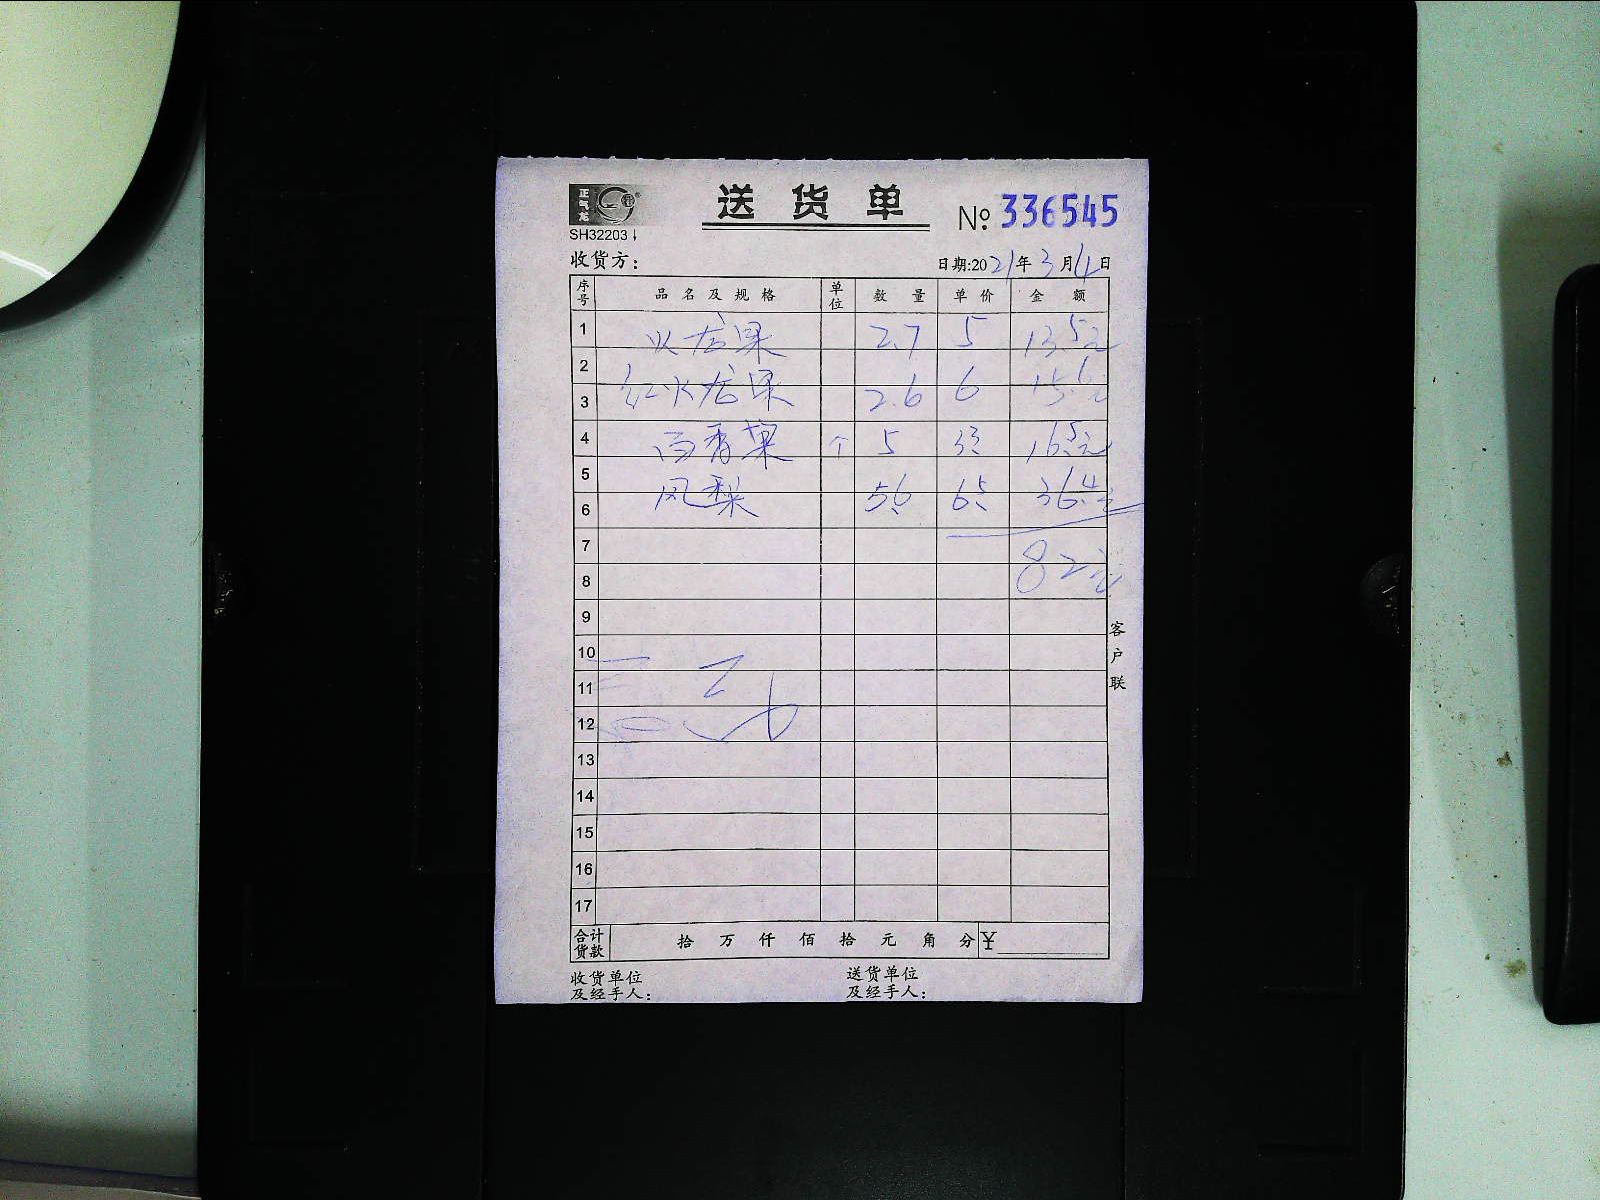 正气龙
送货单
№ 336545
SH32203
收货方：
日期:2021年3月4日
序号 品名及规格 单位 数量 单价 金额
1 火龙果 2.7 5 13.5元
2
红火龙果 2.6 6 15.6元
3
4 百香果 个 5 3.3 16.5元
5
凤梨 5.6 6.5 36.4元
6
7
82元
8
9
10
11
12
13
14
15
16
17
客户联
合计货款 拾 万 仟 佰 拾 元 角 分 ¥
收货单位及经手人：
送货单位及经手人：